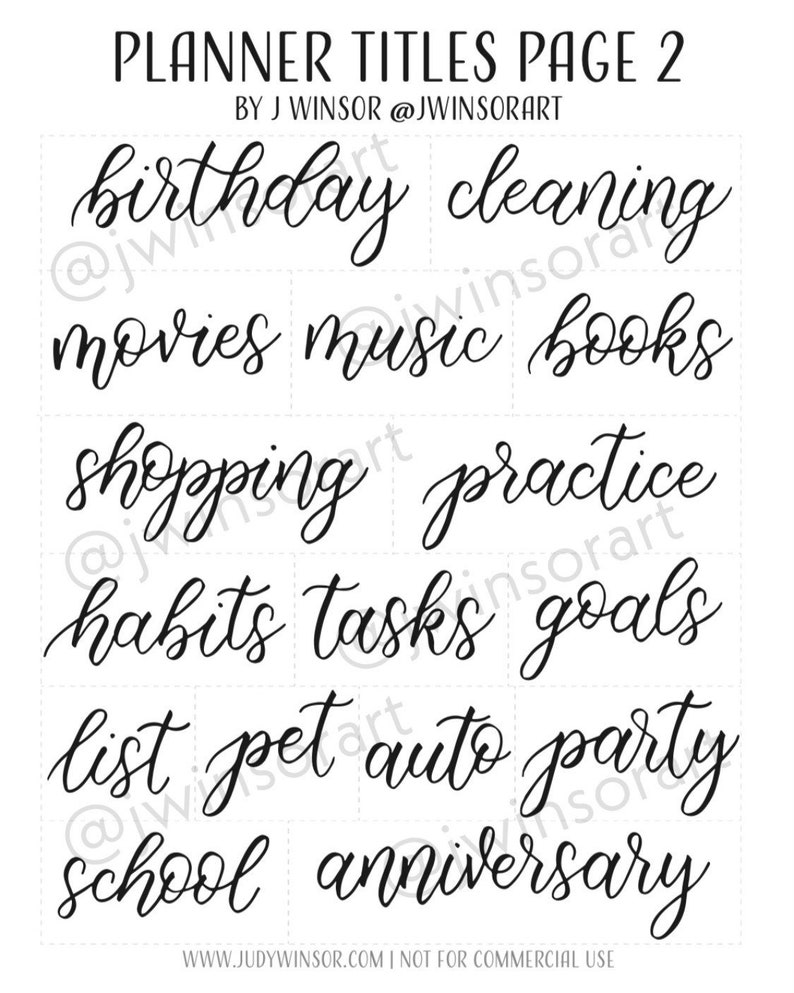 PLANNER TITLES PAGE 2
BY J WINSOR @JWINSORART
birthday cleaning
@jwinsorart
@jwinsorart
movies music books
shopping practice
@jwinsorart
@jwinsorart
habits tasks goals
list pet auto party
@jwinsorart
@jwinsorart
school anniversary
WWW.JUDYWINSOR.COM | NOT FOR COMMERCIAL USE